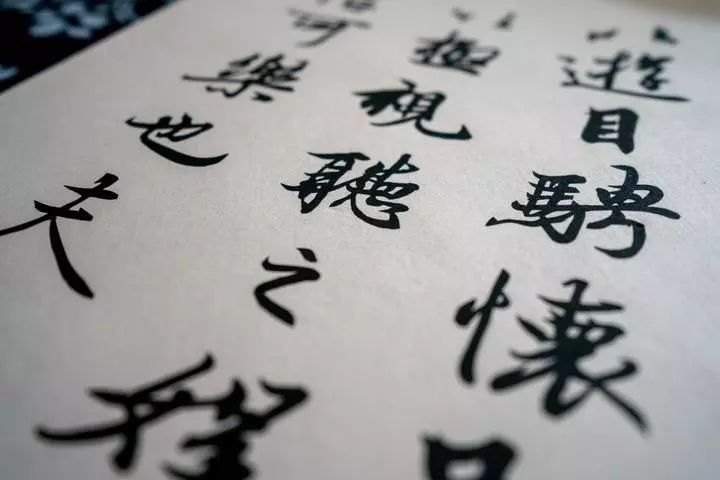 遊目騁懷
極視聽之娛
可樂也夫